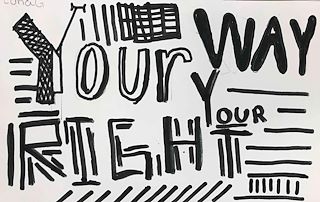 Your WAY
YOUR
RIGHT